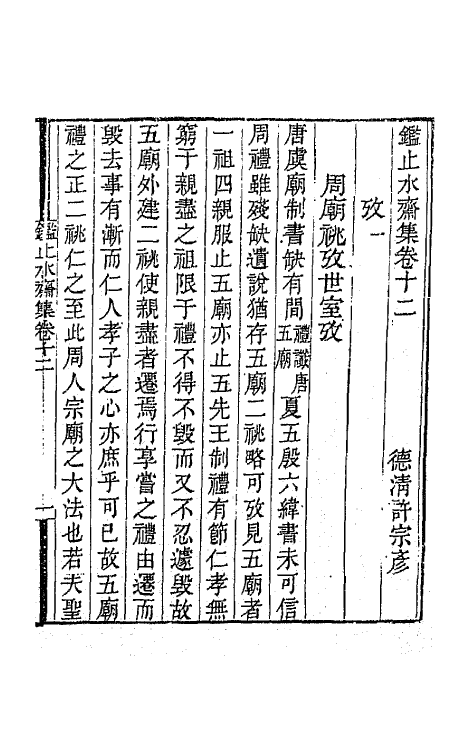 鑑止水齋集卷十二
德清許宗彥
攷一
周廟祧攷世室攷
唐虞廟制書缺有間禮讖唐五廟夏五殷六緯書未可信
周禮雖殘缺遺說猶存五廟二祧略可攷見五廟者
一祖四親服止五廟亦止五先王制禮有節仁孝無
窮于親盡之祖限于禮不得不毀而又不忍遽毀故
五廟外建二祧使親盡者遷焉行享嘗之禮由遷而
毀去事有漸而仁人孝子之心亦庶乎可已故五廟
禮之正二祧仁之至此周人宗廟之大法也若夫聖
鑑止水齋集卷十二
一